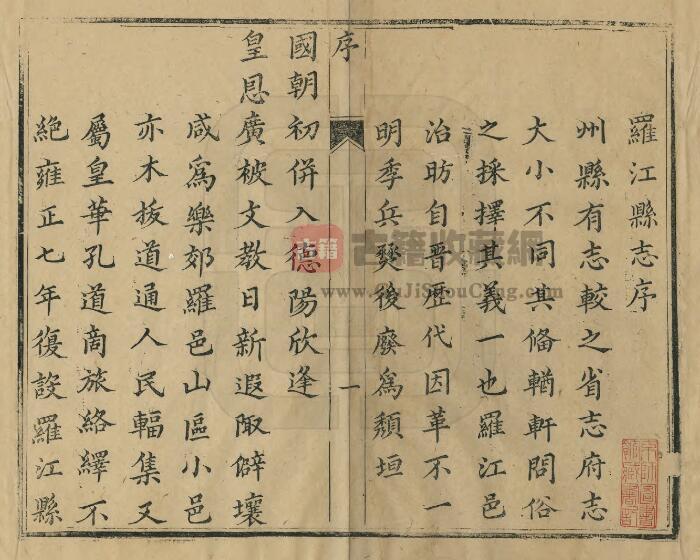 羅江縣志序
州縣有志較之省志府志
大小不同其俻輶軒問俗
之採擇其義一也羅江邑
治昉自晉歷代因革不一
明季兵燹後廢為頽垣
序
一
國朝初併入德陽欣逢
皇恩廣被文教日新遐陬僻壤
咸爲樂郊羅邑山區小邑
亦木拔道通人民輻集又
屬皇華孔道商旅絡繹不
絶雍正七年復設羅江縣
古籍
古籍收藏網
www.GuJiShouCang.com